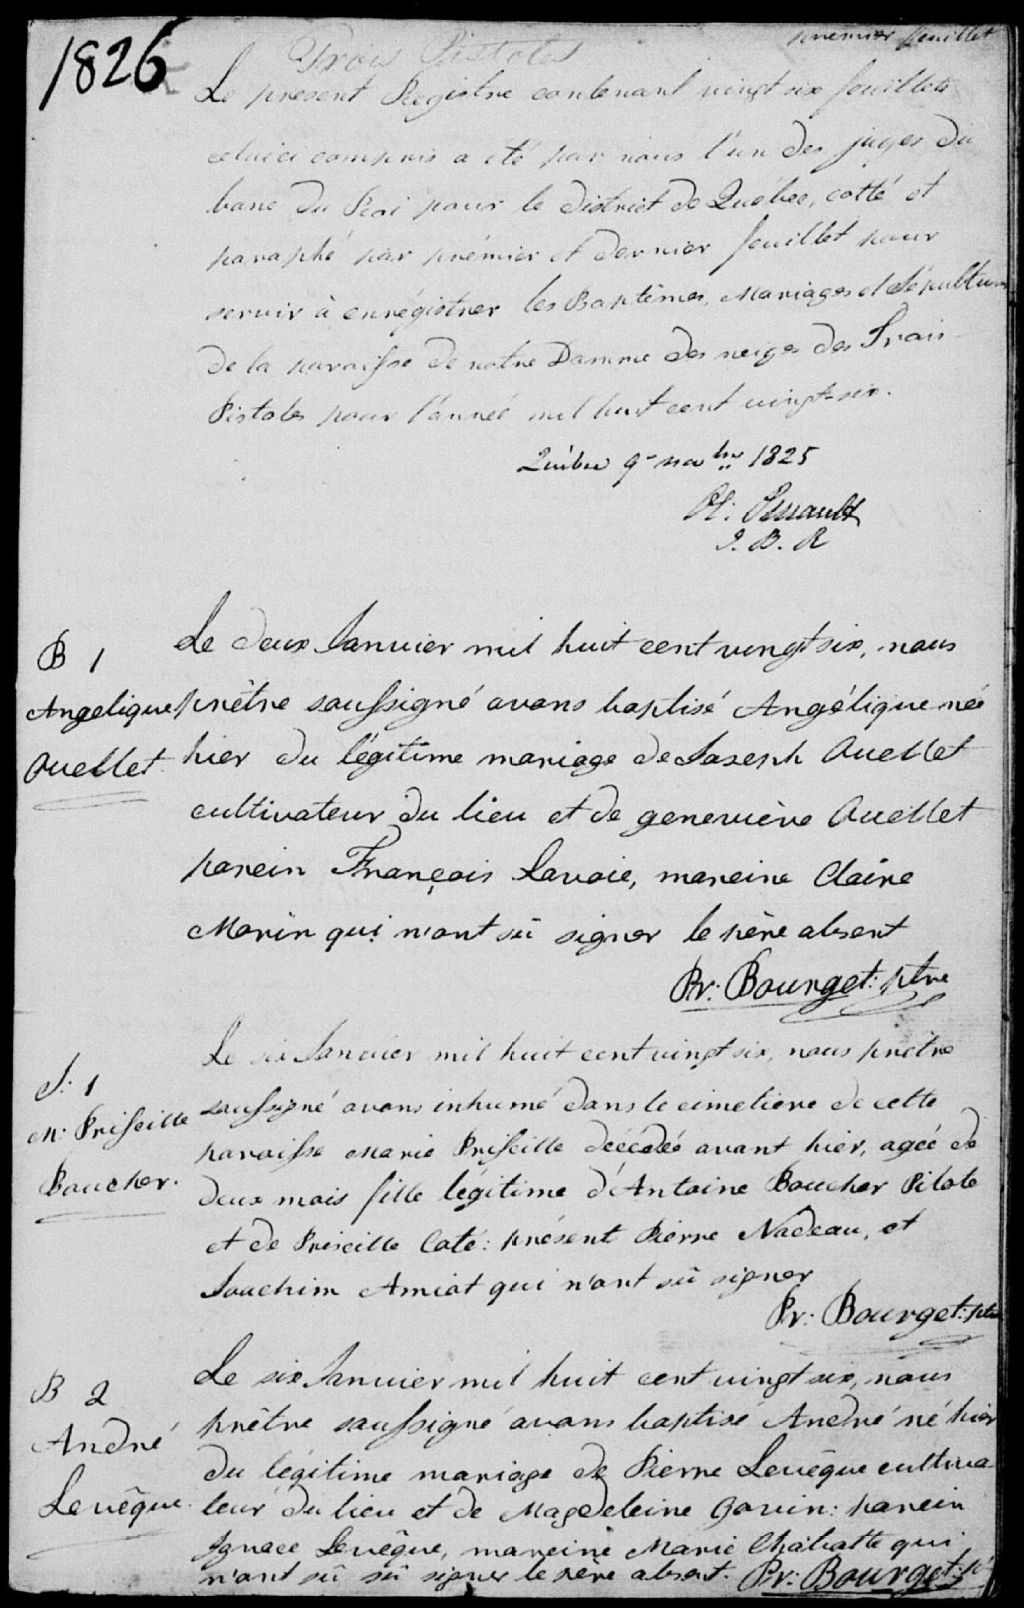 1826
premier feuillet
Trois Pistoles
Le présent Registre contenant vingt six feuillets
celuici compris a été par nous l'un des juges du
banc du Roi pour le district de Québec, cotté et
paraphé par prémier et dernier feuillet pour
servir à enrégistrer les Baptêmes, Mariages et Sépultures
de la paroisse de notre Damme des neiges des Trois
Pistoles pour l'année mil huit cent vingt-six.
Québec 9 novbre 1825
Ol: Perrault
J. B. R
B 1
Angelique
Ouellet
Le deux Janvier mil huit cent vingt six, nous
prêtre soussigné avons baptisé Angélique née
hier du légitime mariage de Joseph Ouellet
cultivateur du lieu et de geneviève Ouellet
parein François Lavoie, mareine Claire
Morin qui n'ont sû signer le père absent
Pr: Bourget: ptre
S. 1
M: Prisseille
Boucher.
Le six Janvier mil huit cent vingt six, nous prêtre
soussigné avons inhumé dans le cimetière de cette
paroisse Marie Prisseille décédée avant hier, agée de
deux mois fille légitime d'Antoine Boucher Pilote
et de Priseille Coté: présent Pierre Nadeau, et
Joachim Amiot qui n'ont sû signer
Pr: Bourget: ptre
B 2
André
Levêque
Le six Janvier mil huit cent vingt six, nous
prêtre soussigné avons baptisé André né hier
du légitime mariage de Pierre Levêque cultiva
teur du lieu et de Magdeleine Govin: parein
Ignace Levêque, mareine Marie qui
n'ont sû sû signer le père absent. Pr: Bourget: p